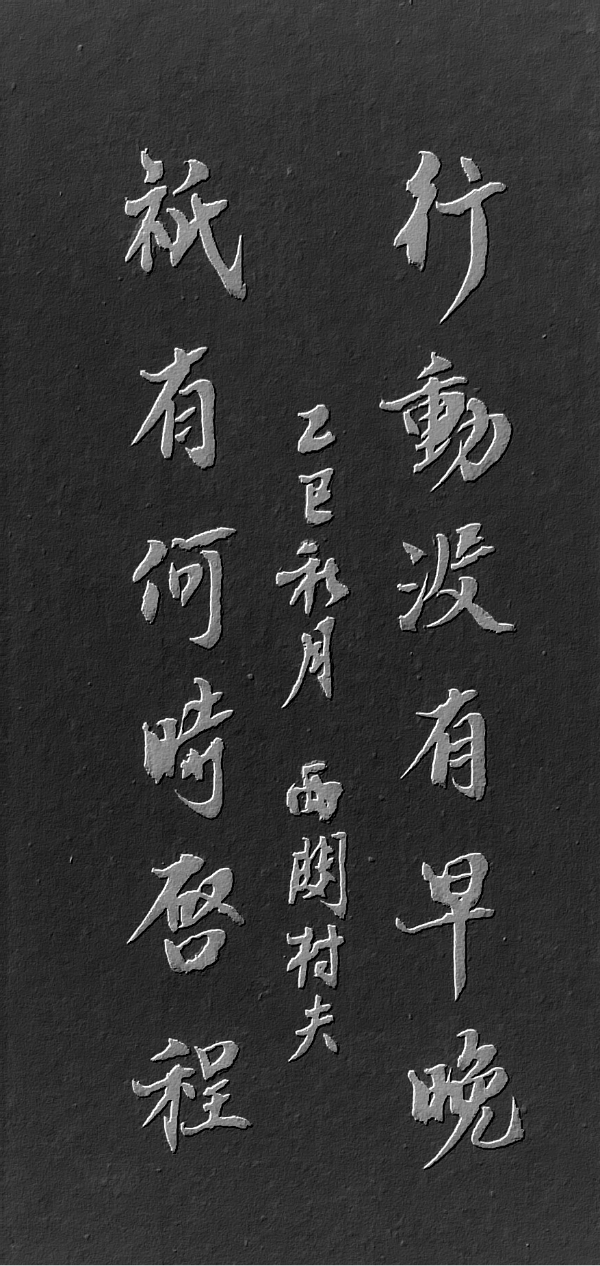 行動没有早晚
祇有何時啓程
乙巳秋月 西關村夫